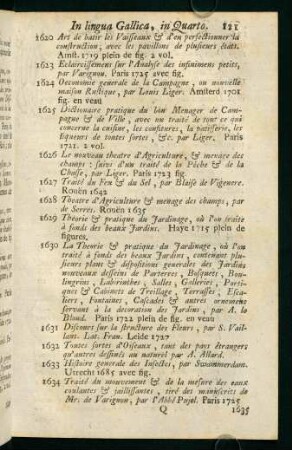 In lingua Gallica, in Quarto. 121
1620 Art de batir les Vaisseaux & d'en perfectionner la
construction, avec les pavillons de plusieurs états.
Amst. 1719 plein de fig. 2 vol.
1623 Eclaircissemens sur l'Analyse des infiniment petits,
par Varignon. Paris 1725 avec fig.
1624 Oeconomie generale de la Campagne, ou nouvelle
maison Rustique, par Louis Liger. Amsterd 1701
fig. en veau
1625 Dictionnaire pratique du bon Menager de Cam-
pagne & de Ville, avec un traité de tout ce qui
concerne la cuisine, les confitures, la patisserie, les
liqueurs de toutes sortes, &c. par Liger. Paris
1721. 2 vol.
1626 Le nouveau theatre d'Agriculture, & menage des
champs; suivi d'un traité de la Pêche & de la
Chasse, par Liger. Paris 1723 fig.
1627 Traité du Feu & du Sel, par Blaise de Vigenere.
Rouën 1642
1628 Theatre d'Agriculture & menage des champs, par
de Serres. Rouën 1635
1629 Theorie & pratique du Jardinage, où l'on traite
à fonds des beaux Jardins. Haye 1715 plein de
figures.
1630 La Theorie & pratique du Jardinage, où l'on
traité à fonds des beaux Jardins, contenant plu-
sieurs plans & dispositions generales des Jardins
nouveaux desseins de Parterres, Bosquets, Bou-
lingrins, Labirinthes, Salles, Galleries, Porti-
ques & Cabinets de Treillage, Terrasses, Esca-
liers, Fontaines, Cascades & autres ornemens
servant à la décoration des Jardins, par A. le
Blond. Paris 1722 plein de fig. en veau
1631 Discours sur la structure des Fleurs, par S. Vail-
lant. Lat. Fran. Leide 1727
1632 Toutes sortes d'Oiseaux, tant des pays étrangers
qu'autres dessinés au naturel par A. Allard.
1633 Histoire generale des Insectes, par Swammerdam.
Utrecht 1685 avec fig.
1634 Traité du mouvement & de la mesure des eaux
coulantes & jaillissantes, tiré des manuscrits de
Mr. de Varignon, par l'Abbé Pujol. Paris 1725
Q 1635